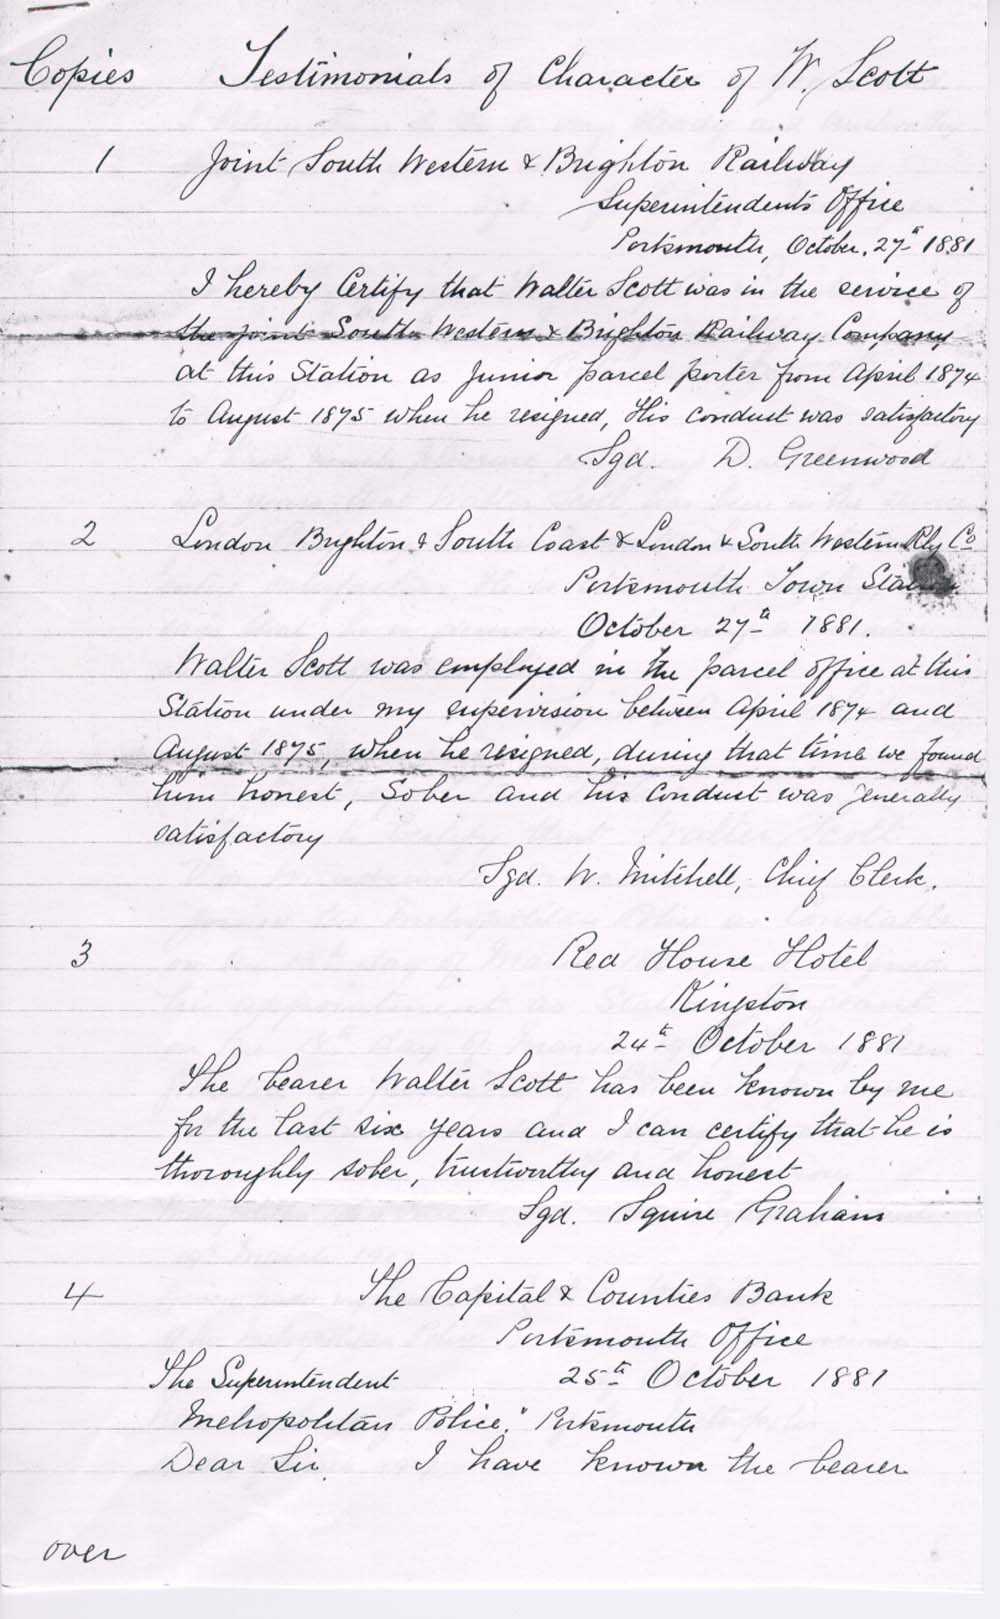 Copies Testimonials of Character of W. Scott
1 Joint South Western & Brighton Railway
Superintendents Office
Portsmouth, October, 27th 1881
I hereby Certify that Walter Scott was in the service of
the joint South Western & Brighton Railway Company
at this Station as junior parcel porter from April 1874
to August 1875 when he resigned, His conduct was satisfactory
Sgd. D. Greenwood
2 London Brighton & South Coast & London & South Western Rly Co
Portsmouth Town Station
October 27th 1881.
Walter Scott was employed in the parcel office at this
Station under my supervision between April 1874 and
August 1875, when he resigned, during that time we found
him honest, Sober and his conduct was generally
satisfactory
Sgd. W. Mitchell, Chief Clerk.
3 Red House Hotel
Kingston
24th October 1881
The bearer Walter Scott has been known by me
for the last six years and I can certify that he is
thoroughly sober, trustworthy and honest
Sgd. Squire Graham
4 The Capital & Counties Bank
Portsmouth Office
The Superintendent 25th October 1881
Metropolitan Police." Portsmouth
Dear Sir, I have known the bearer
over